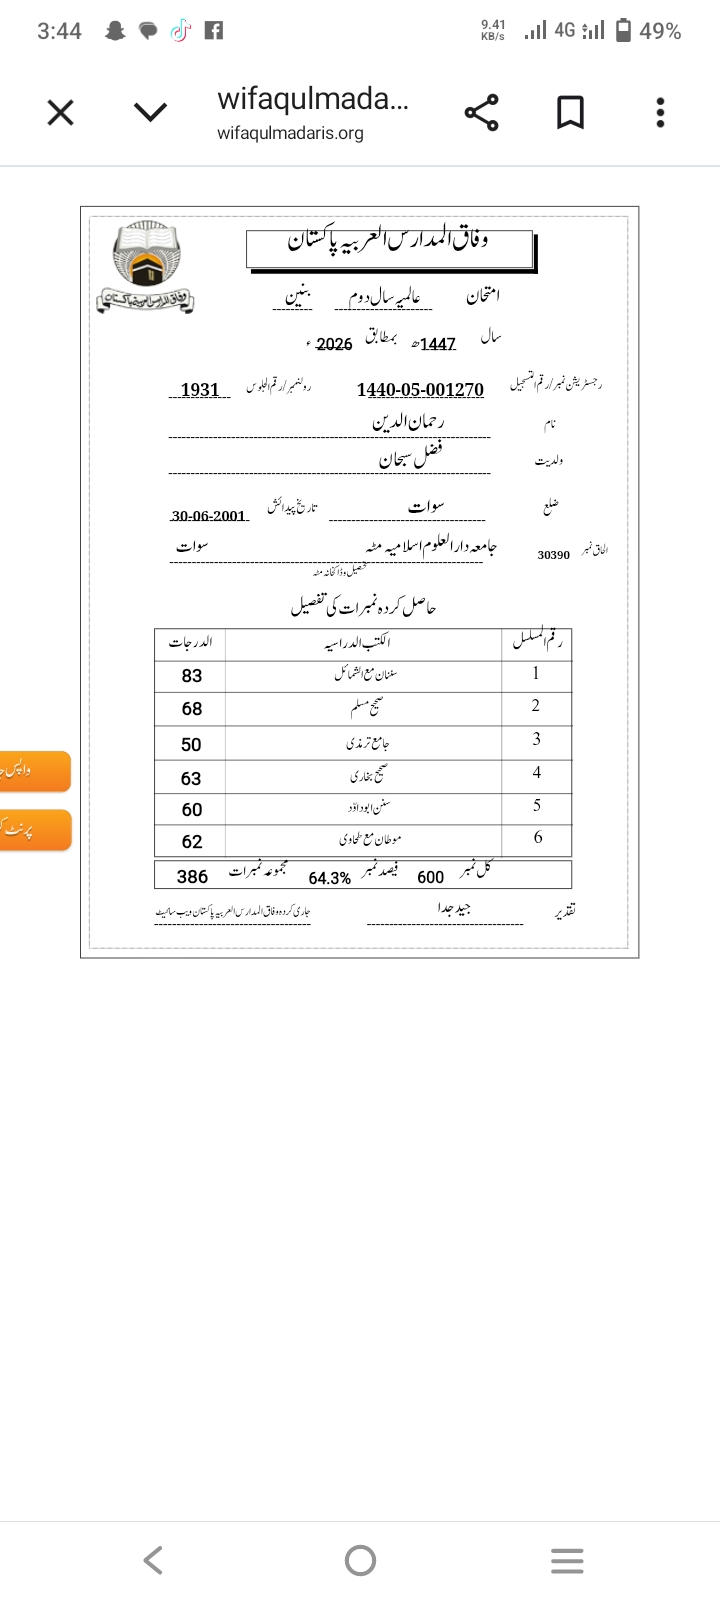 3:44 9.41 KB/s 4G 49%
wifaqulmada...
wifaqulmadaris.org
وفاق المدارس العربیہ پاکستان
وفاق المدارس العربیہ پاکستان
امتحان عالمیہ سال دوم بنین
سال 1447ھ بمطابق 2026 ء
رجسٹریشن نمبر/رقم التسجیل 1440-05-001270 رولنمبر/رقم الجلوس 1931
نام رحمان الدین
ولدیت فضل سبحان
ضلع سوات تاریخ پیدائش 30-06-2001
الحاق نمبر 30390 جامعہ دارالعلوم اسلامیہ مٹہ سوات
تحصیل وڈاکخانہ مٹہ
حاصل کردہ نمبرات کی تفصیل
رقم المسلسل الکتب الدراسیہ الدرجات
1 سننان مع الشمائل 83
2 صحیح مسلم 68
3 جامع ترمذی 50
4 صحیح بخاری 63
5 سنن ابوداؤد 60
6 موطان مع طحاوی 62
کل نمبر 600 فیصد نمبر 64.3% مجموعہ نمبرات 386
تقدیر جید جدا جاری کردہ وفاق المدارس العربیہ پاکستان ویب سائیٹ
واپس
پرنٹ